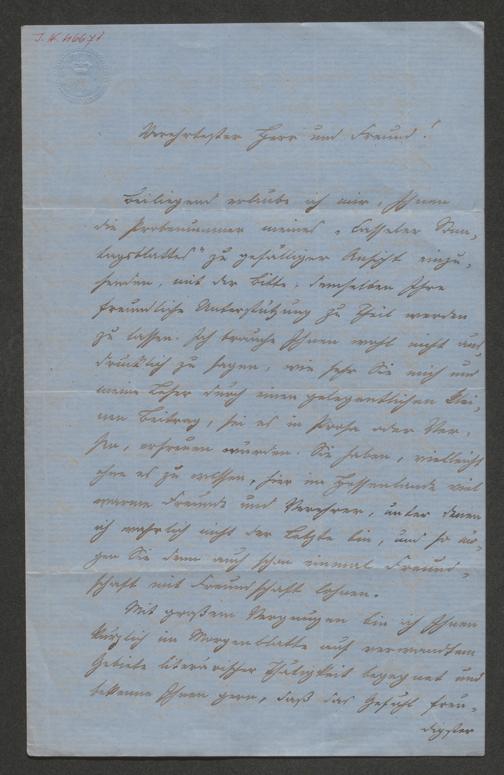 I. N. 46671
Verehrtester Herr und Freund!
Beiliegend erlaube ich mir, Ihnen
die Probenummer meines „Casseler Sonn-
tagsblattes" zu gefälliger Ansicht einzu-
senden, mit der Bitte, demselben Ihre
freundliche Unterstützung zu Theil werden
zu lassen. Ich brauche Ihnen wohl nicht aus-
drücklich zu sagen, wie sehr Sie mich und
meine Leser durch einen gelegentlichen klei-
nen Beitrag, sei es in Prosa oder Ver-
sen, erfreuen würden. Sie haben, vielleicht
ohne es zu wissen, hier im Hessenlande viel
warme Freunde und Verehrer, unter denen
ich wahrlich nicht der Letzte bin, und so mö-
gen Sie denn auch schon einmal Freund-
schaft mit Freundschaft lohnen.
Mit großem Vergnügen bin ich Ihnen
kürzlich im Morgenblatte auf verwandtem
Gebiete literarischer Thätigkeit begegnet und
bekenne Ihnen gern, daß das Gefühl freu-
digster